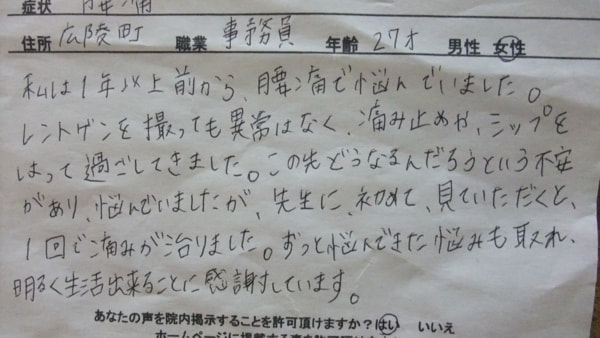 症状 腰痛
住所 広陵町 職業 事務員 年齢 27才 男性 女性
私は1年以上前から、腰痛で悩んでいました。
レントゲンを撮っても異常はなく、痛み止めや、シップを
はって過ごしてきました。この先どうなるんだろうという不安
があり、悩んでいましたが、先生に、初めて、見ていただくと、
1回で痛みが治りました。ずっと悩んできた悩みも取れ、
明るく生活出来ることに感謝しています。
あなたの声を院内掲示することを許可頂けますか?はい いいえ
ホームページに掲載する事を許可頂